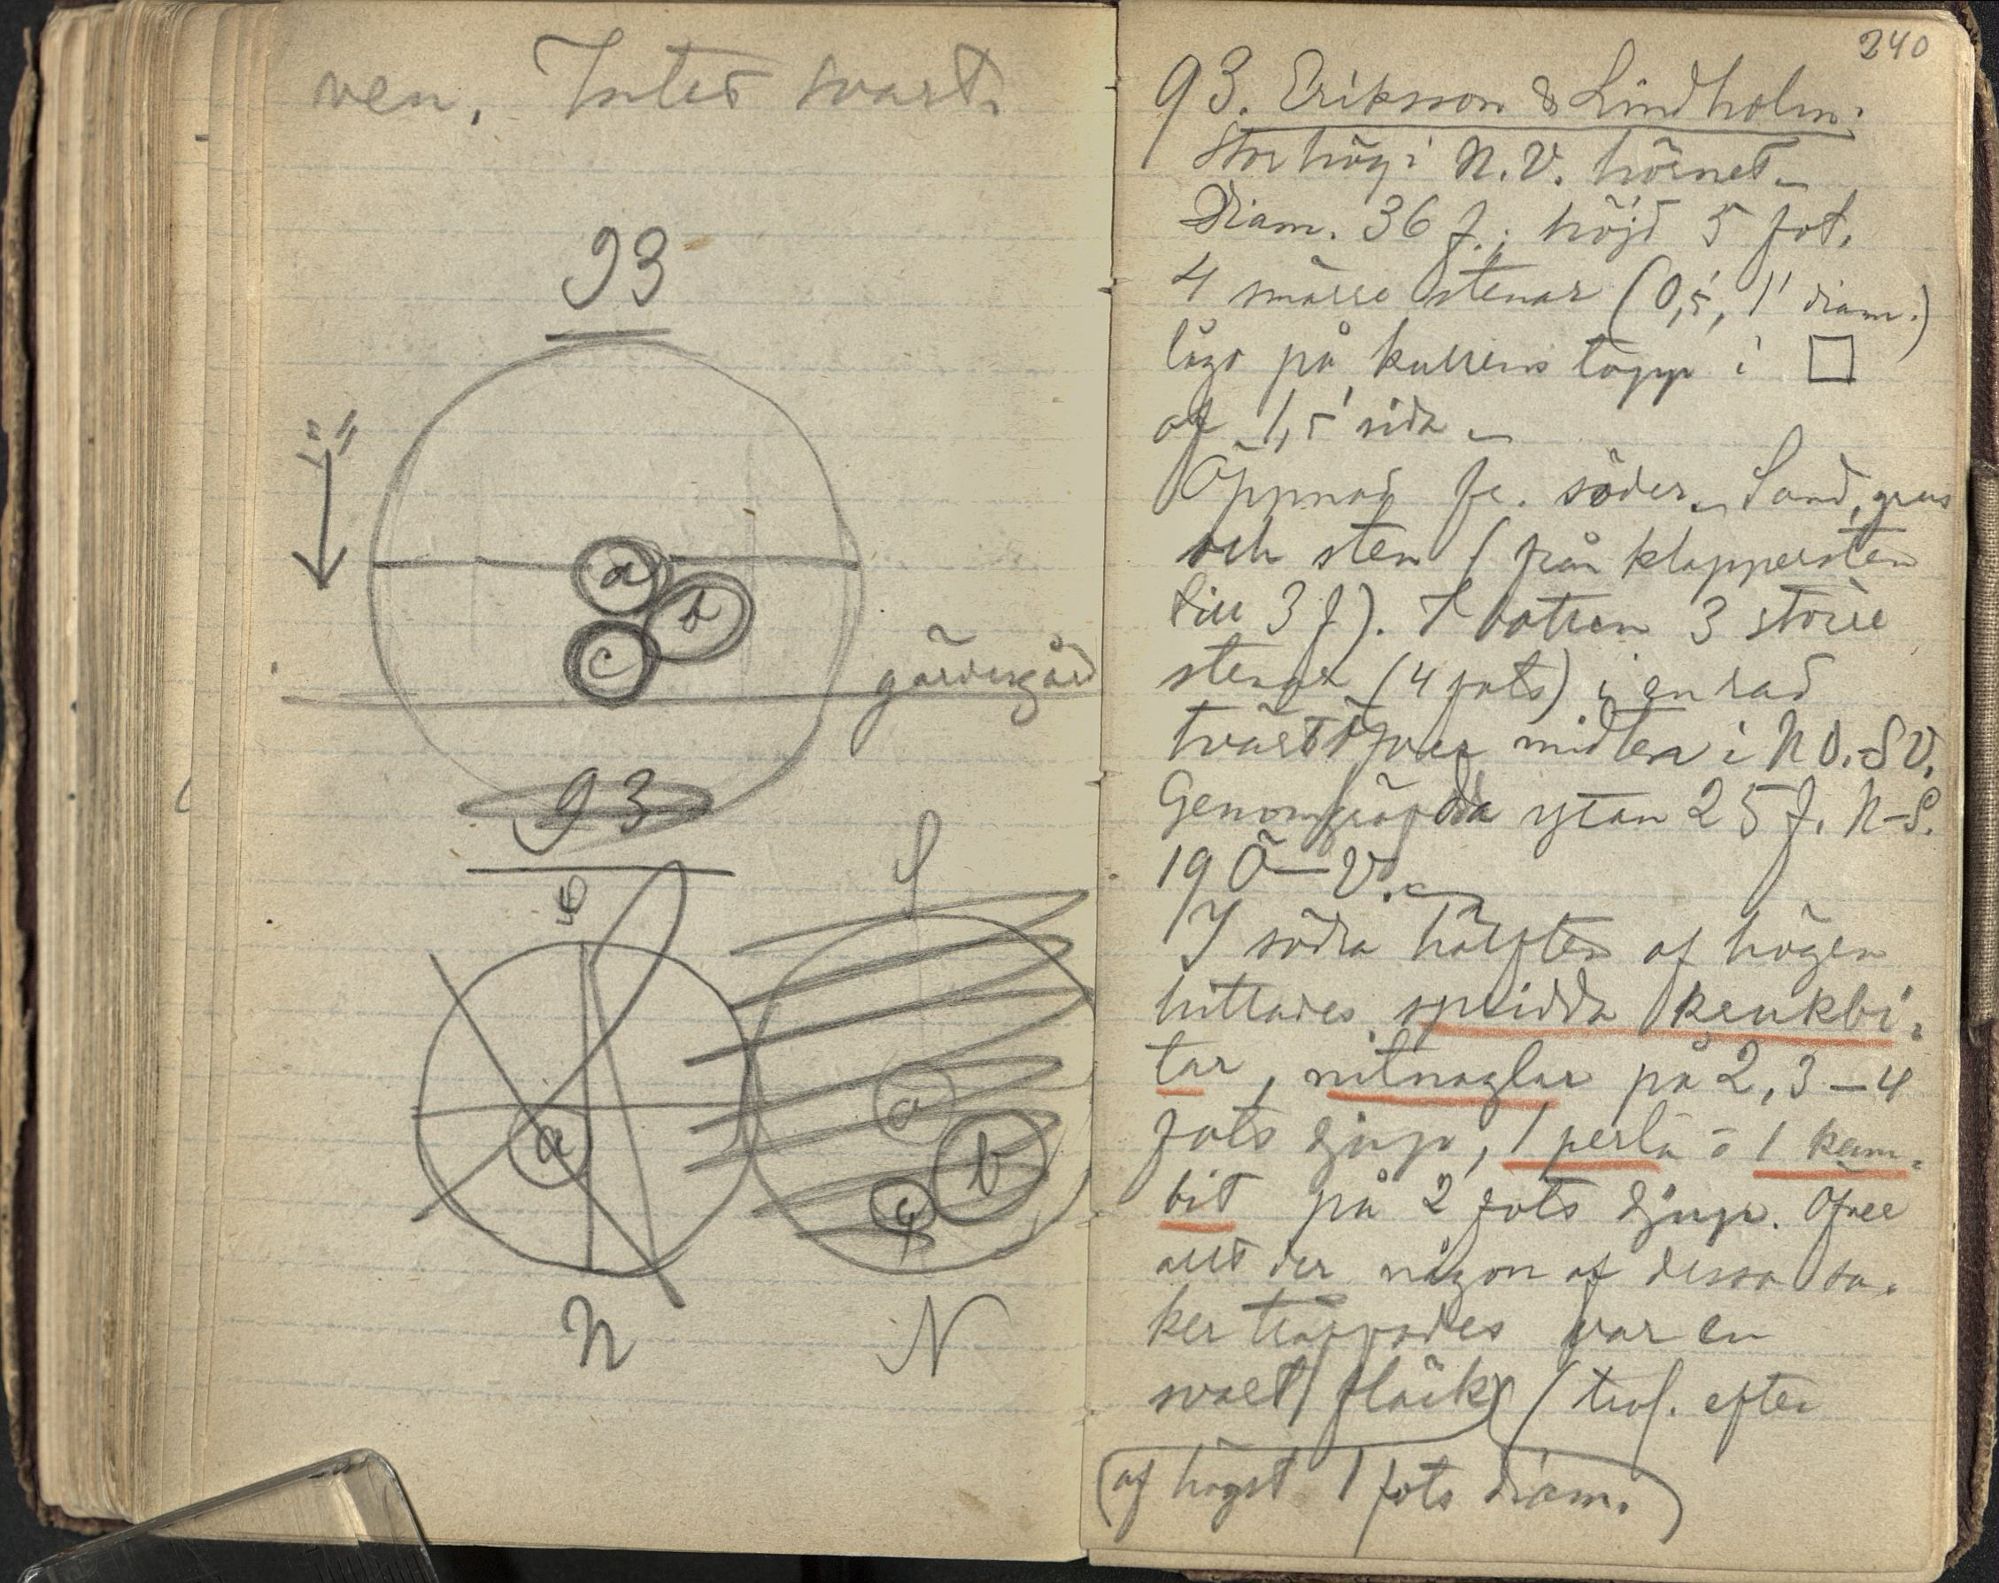 ven. Intet svart.
93
a
b
c
gärdesgård
93
S
S
a
a
b
c
N
N
240
93. Eriksson & Lindholm.
Stor hög i N.V. hörnet.
Diam. 36 f.; höjd 5 fot.
4 smärre stenar (0,5, 1' diam.)
lågo på kullens topp i □
af 1,5' sida
Öppnad fr. söder. Sand, grus
och sten (från klappersten
till 3 f). I botten 3 större
stenar (4 fots) i en rad
tvärt öfver midten i NO.-SV.
Genomgräfda ytan 25 f. N-S.
19 Ö-V.
I södra hälften af högen
hittades spridda krukbi-
tar, nitnaglar på 2, 3-4
fots djup, 1 perla o 1 kam-
bit på 2 fots djup. Öfver
allt der någon af dessa sa-
ker träffades var en
svart fläck (trol. efter
af högst 1 fots diam.